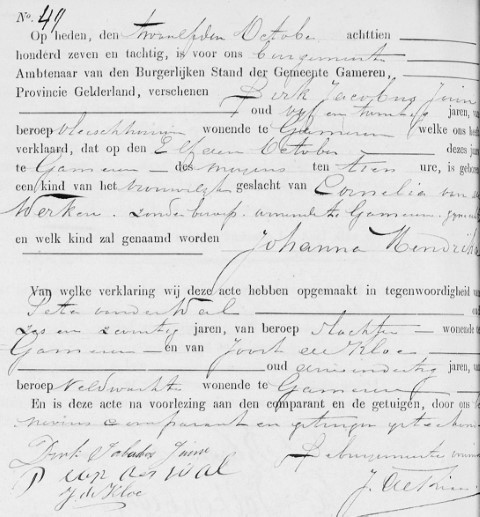 No. 49
Op heden, den twaalfden October achttien
honderd zeven en tachtig, is voor ons burgemeester
Ambtenaar van den Burgerlijken Stand der Gemeente Gameren,
Provincie Gelderland, verschenen Dirk Jacobus
oud vyf en twintig jaren, van
beroep wonende te Gameren welke ons heeft
verklaard, dat op den Elfden October dezes jaars
te Gameren des morgens ten tien ure, is geboren
een kind van het vrouwelyk geslacht van Cornelia van
Werken. zonder beroep. wonende te Gameren.
en welk kind zal genaamd worden Johanna Hendrika
Van welke verklaring wij deze acte hebben opgemaakt in tegenwoordigheid van
Peter van der Wal
zes en twintig jaren, van beroep slachter wonende te
Gameren en van Joost de Kloe
oud jaren, van
beroep Veldwachter wonende te Gameren
En is deze acte na voorlezing aan den comparant en de getuigen, door ons
comparant en getuigen
Dirk Jakobus De burgemeester
P van der wal
J. de Kloe